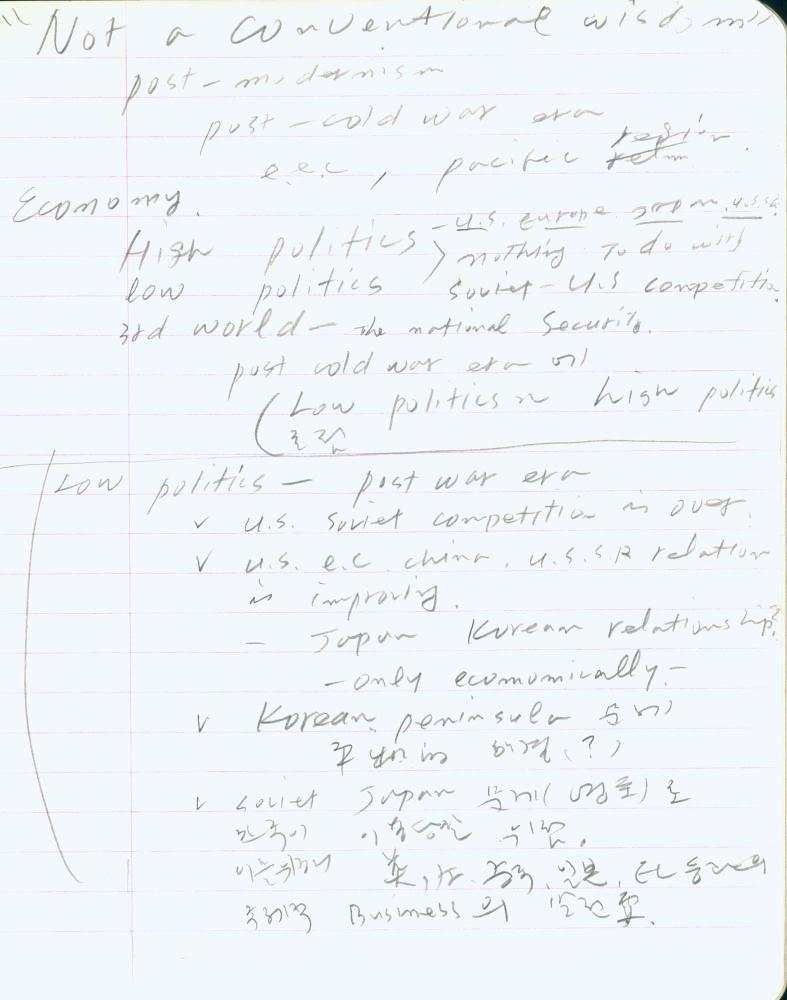 "Not a conventional wisdom"
post-modernism
post-cold war era
e.e.c, pacific region
Economy.
High politics - U.S. Europe Japan. U.S.S.R.
nothing to do with
low politics soviet-U.S competition
3rd world - The national Security.
post cold war era 에
(Low politics high politics
Low politics - post war era
✓ U.S. soviet competition is over.
✓ U.S. e.c. china. U.S.S.R relation
is improving.
- Japan Korean relationship?
- only ecomomically -
✓ Korean peninsula 문제
해결(?)
✓ soviet Japan 문제(영토)로
한국이
이를위해 중국, 일본, EC 등과의
국제적 Business의 발전